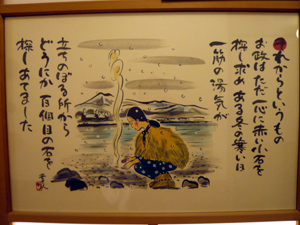 それからというもの
お政はただ一心に赤い小石を
探し求め ある冬の寒い日
一筋の湯気が
立ちのぼる所から
どうにか百個目の石を
探しあてました